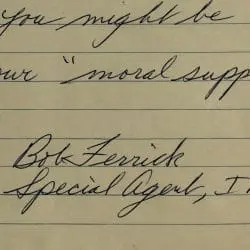 You might be
our "moral supp
Bob Ferrick
Special Agent, I